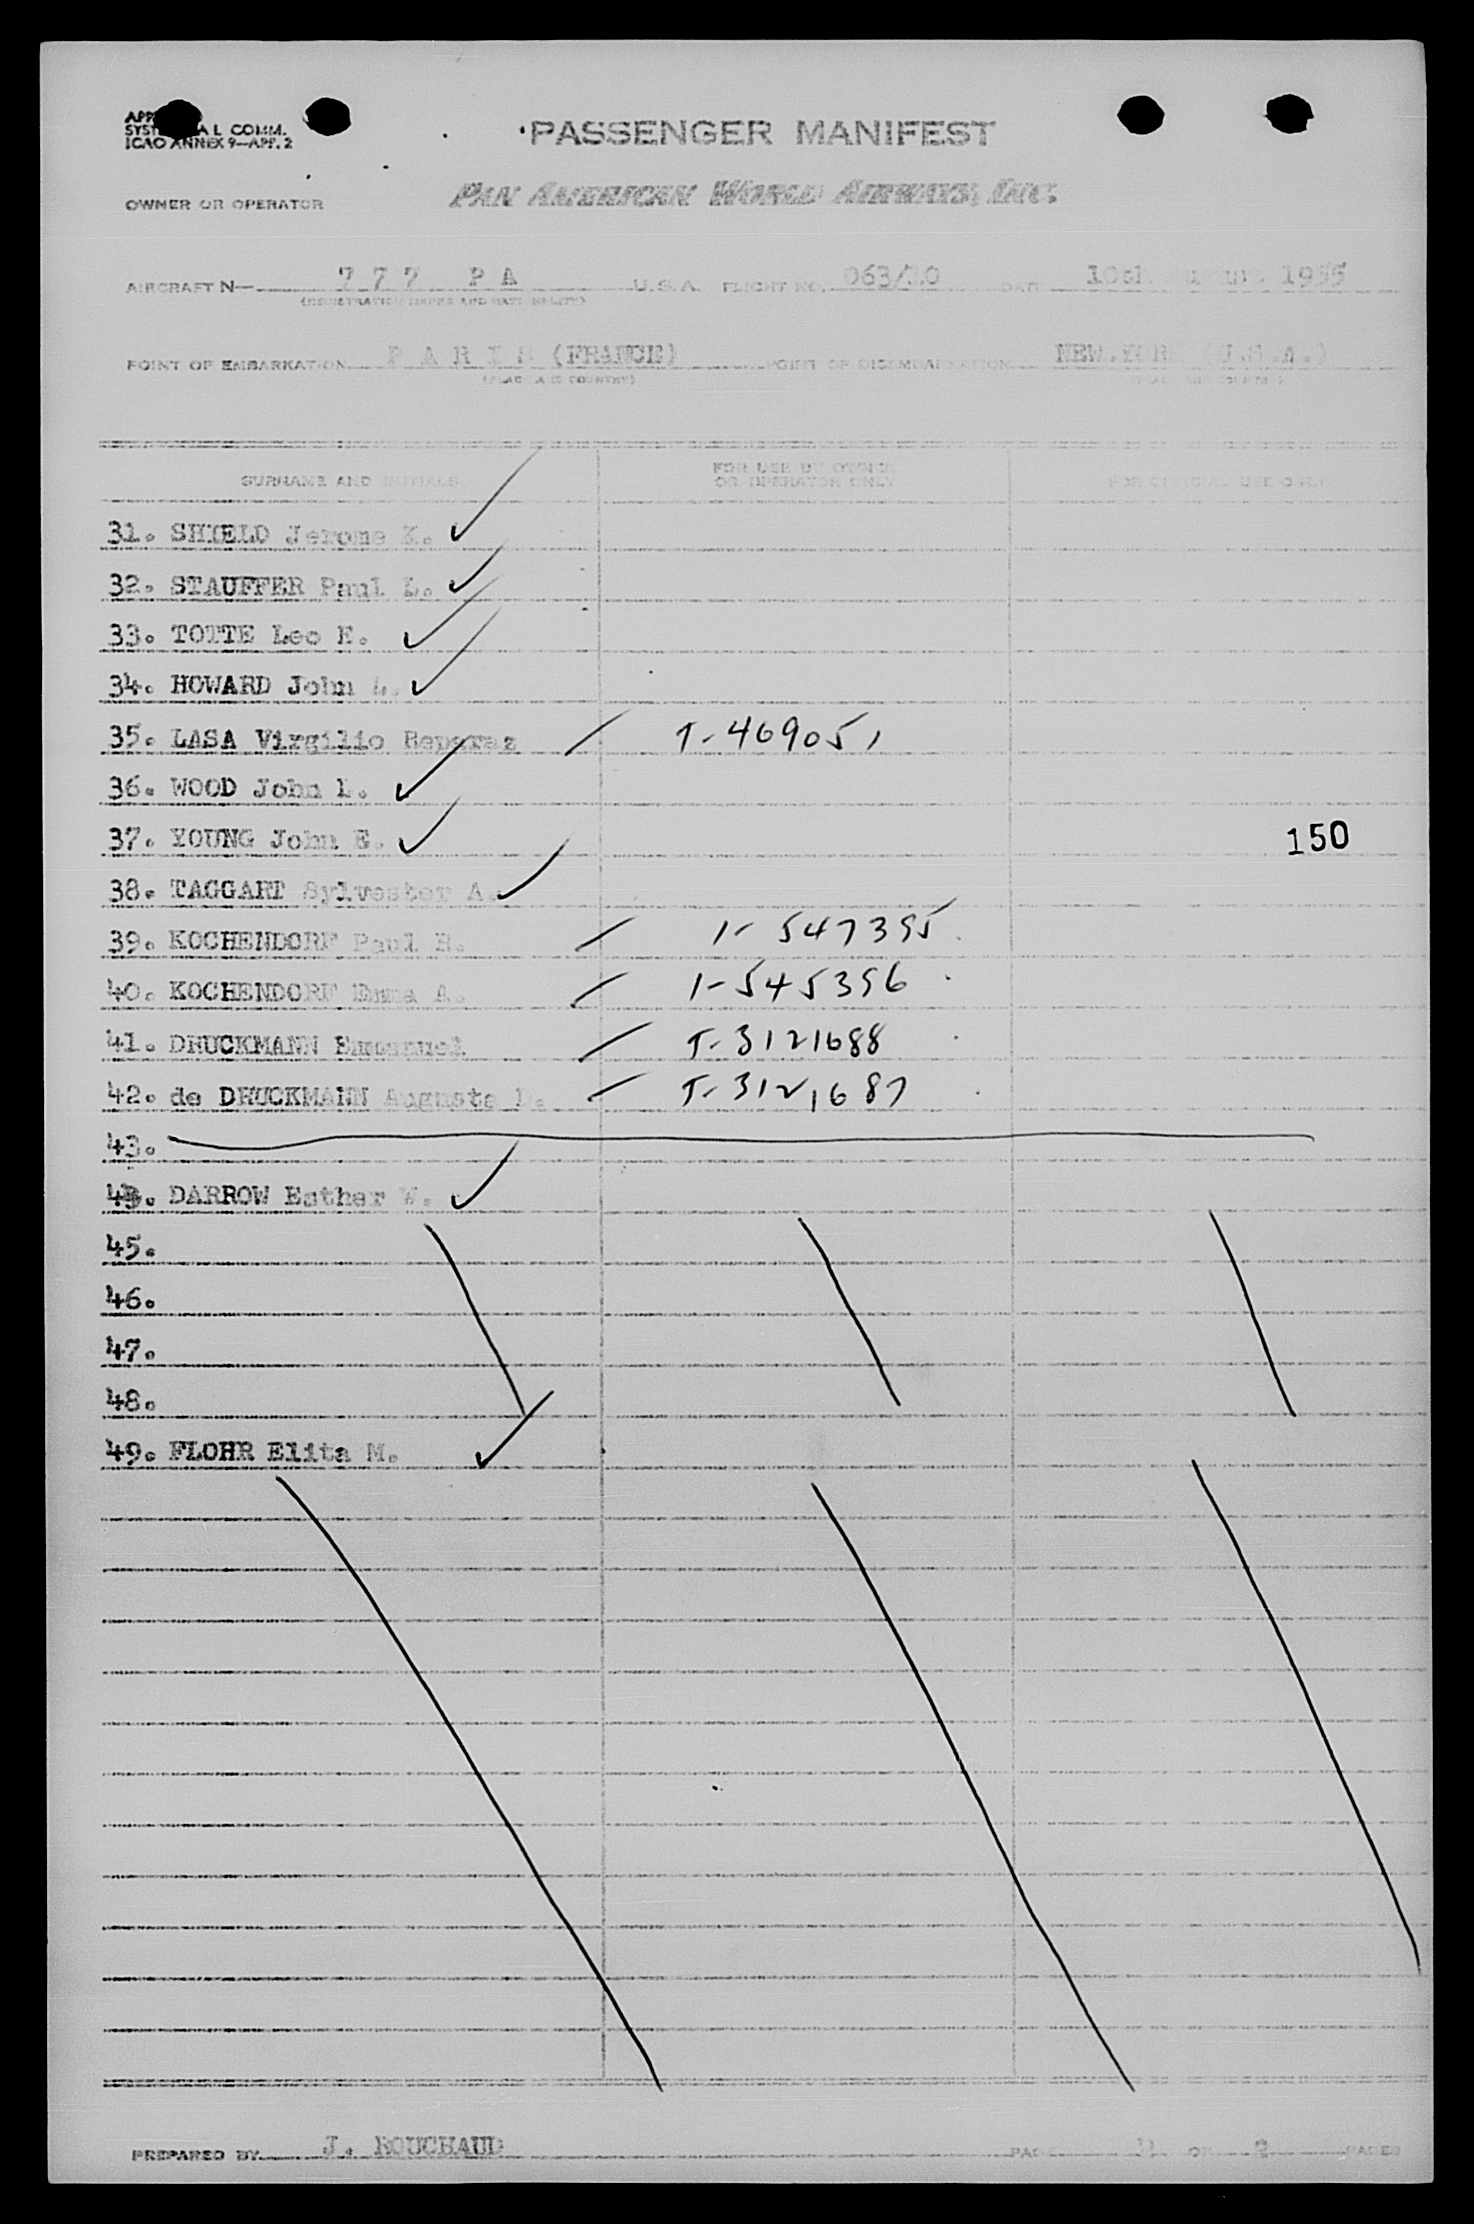 COMM.
ICAO ANNEX 9—APP. 2
PASSENGER MANIFEST
OWNER OR OPERATOR
PAN AMERICAN WORLD AIRWAYS, INC.
AIRCRAFT N— 777 PA U.S.A. FLIGHT NO. 063/ 10th 1955
POINT OF EMBARKATION P A R I S (FRANCE) POINT OF DISEMBARKATION NEW.YORK (U.S.A.)
(PLACE AND COUNTRY)
SURNAME AND INITIALS
FOR USE BY OWNER
OR OPERATOR ONLY
FOR OFFICIAL USE ONLY
31. SHIELD Jerome
32. STAUFFER Paul L.
33. TOTTE Leo E.
34. HOWARD John
35. LASA Virgilio Reparaz T-469051
36. WOOD John L.
37. YOUNG John E.
150
38. TAGGART Sylvester A.
39. KOCHENDORF Paul 1- 547395
40. KOCHENDORF Emma A. 1-545396
41. DRUCKMANN Emmanuel T-3121688
42. de DRUCKMANN Augusta T-3121687
43.
DARROW Esther W.
45.
46.
47.
48.
49. FLOHR Elita M.
PREPARED BY J. ROUCHAUD PAGE OF 2 PAGES